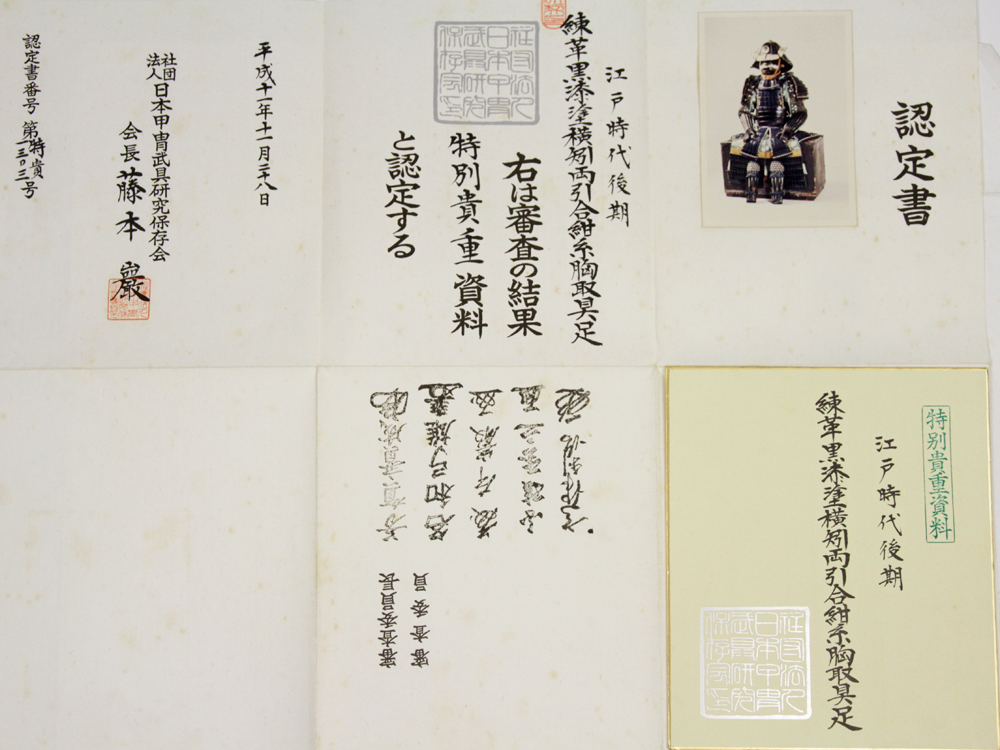 認定書
江戸時代後期
練革黒漆塗横矧両引合紺糸胸取具足
右は審査の結果
特別貴重資料
と認定する
社団法人日本甲冑武具研究保存会印
平成十一年十一月二十八日
社団法人 日本甲冑武具研究保存会
会長 藤本巖
認定書番号 第特貴一三〇三号
審査委員長
審査委員
特別貴重資料
江戸時代後期
練革黒漆塗横矧両引合紺糸胸取具足
社団法人日本甲冑武具研究保存会印